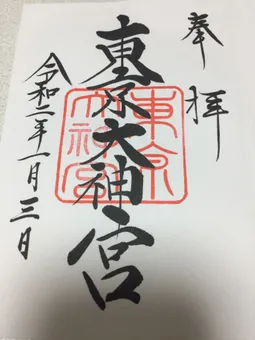 奉拝
東京大神宮
東京大神宮
令和二年一月三日